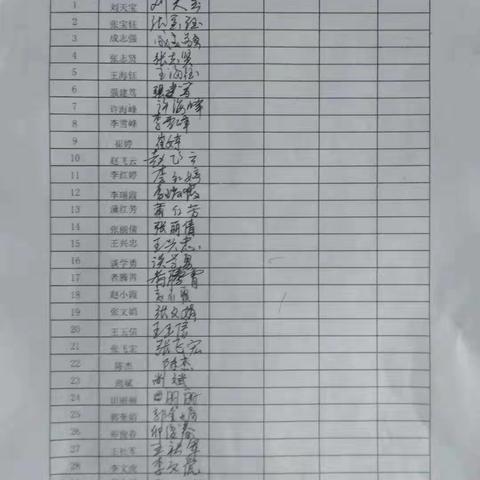 1 刘天宝 刘天宝
2 张宝钰 张宝钰
3 成志强 成志强
4 张志贤 张志贤
5 王海钰 王海钰
6 强建笃 强建笃
7 许海峰 许海峰
8 李雪峰 李雪峰
9 崔婷 崔婷
10 赵飞云 赵飞云
11 李红婷 李红婷
12 李瑞霞 李瑞霞
13 蒲红芳
14 张丽倩 张丽倩
15 王兴忠 王兴忠
16 谈学勇 谈学勇
17
18 赵小霞
19 张文娟 张文娟
20 王玉信 王玉信
21 张飞宏 张飞宏
22 陈杰 陈杰
23 尚斌 尚斌
24 田丽丽 田丽丽
25
26
27 王社军
28 李文虎